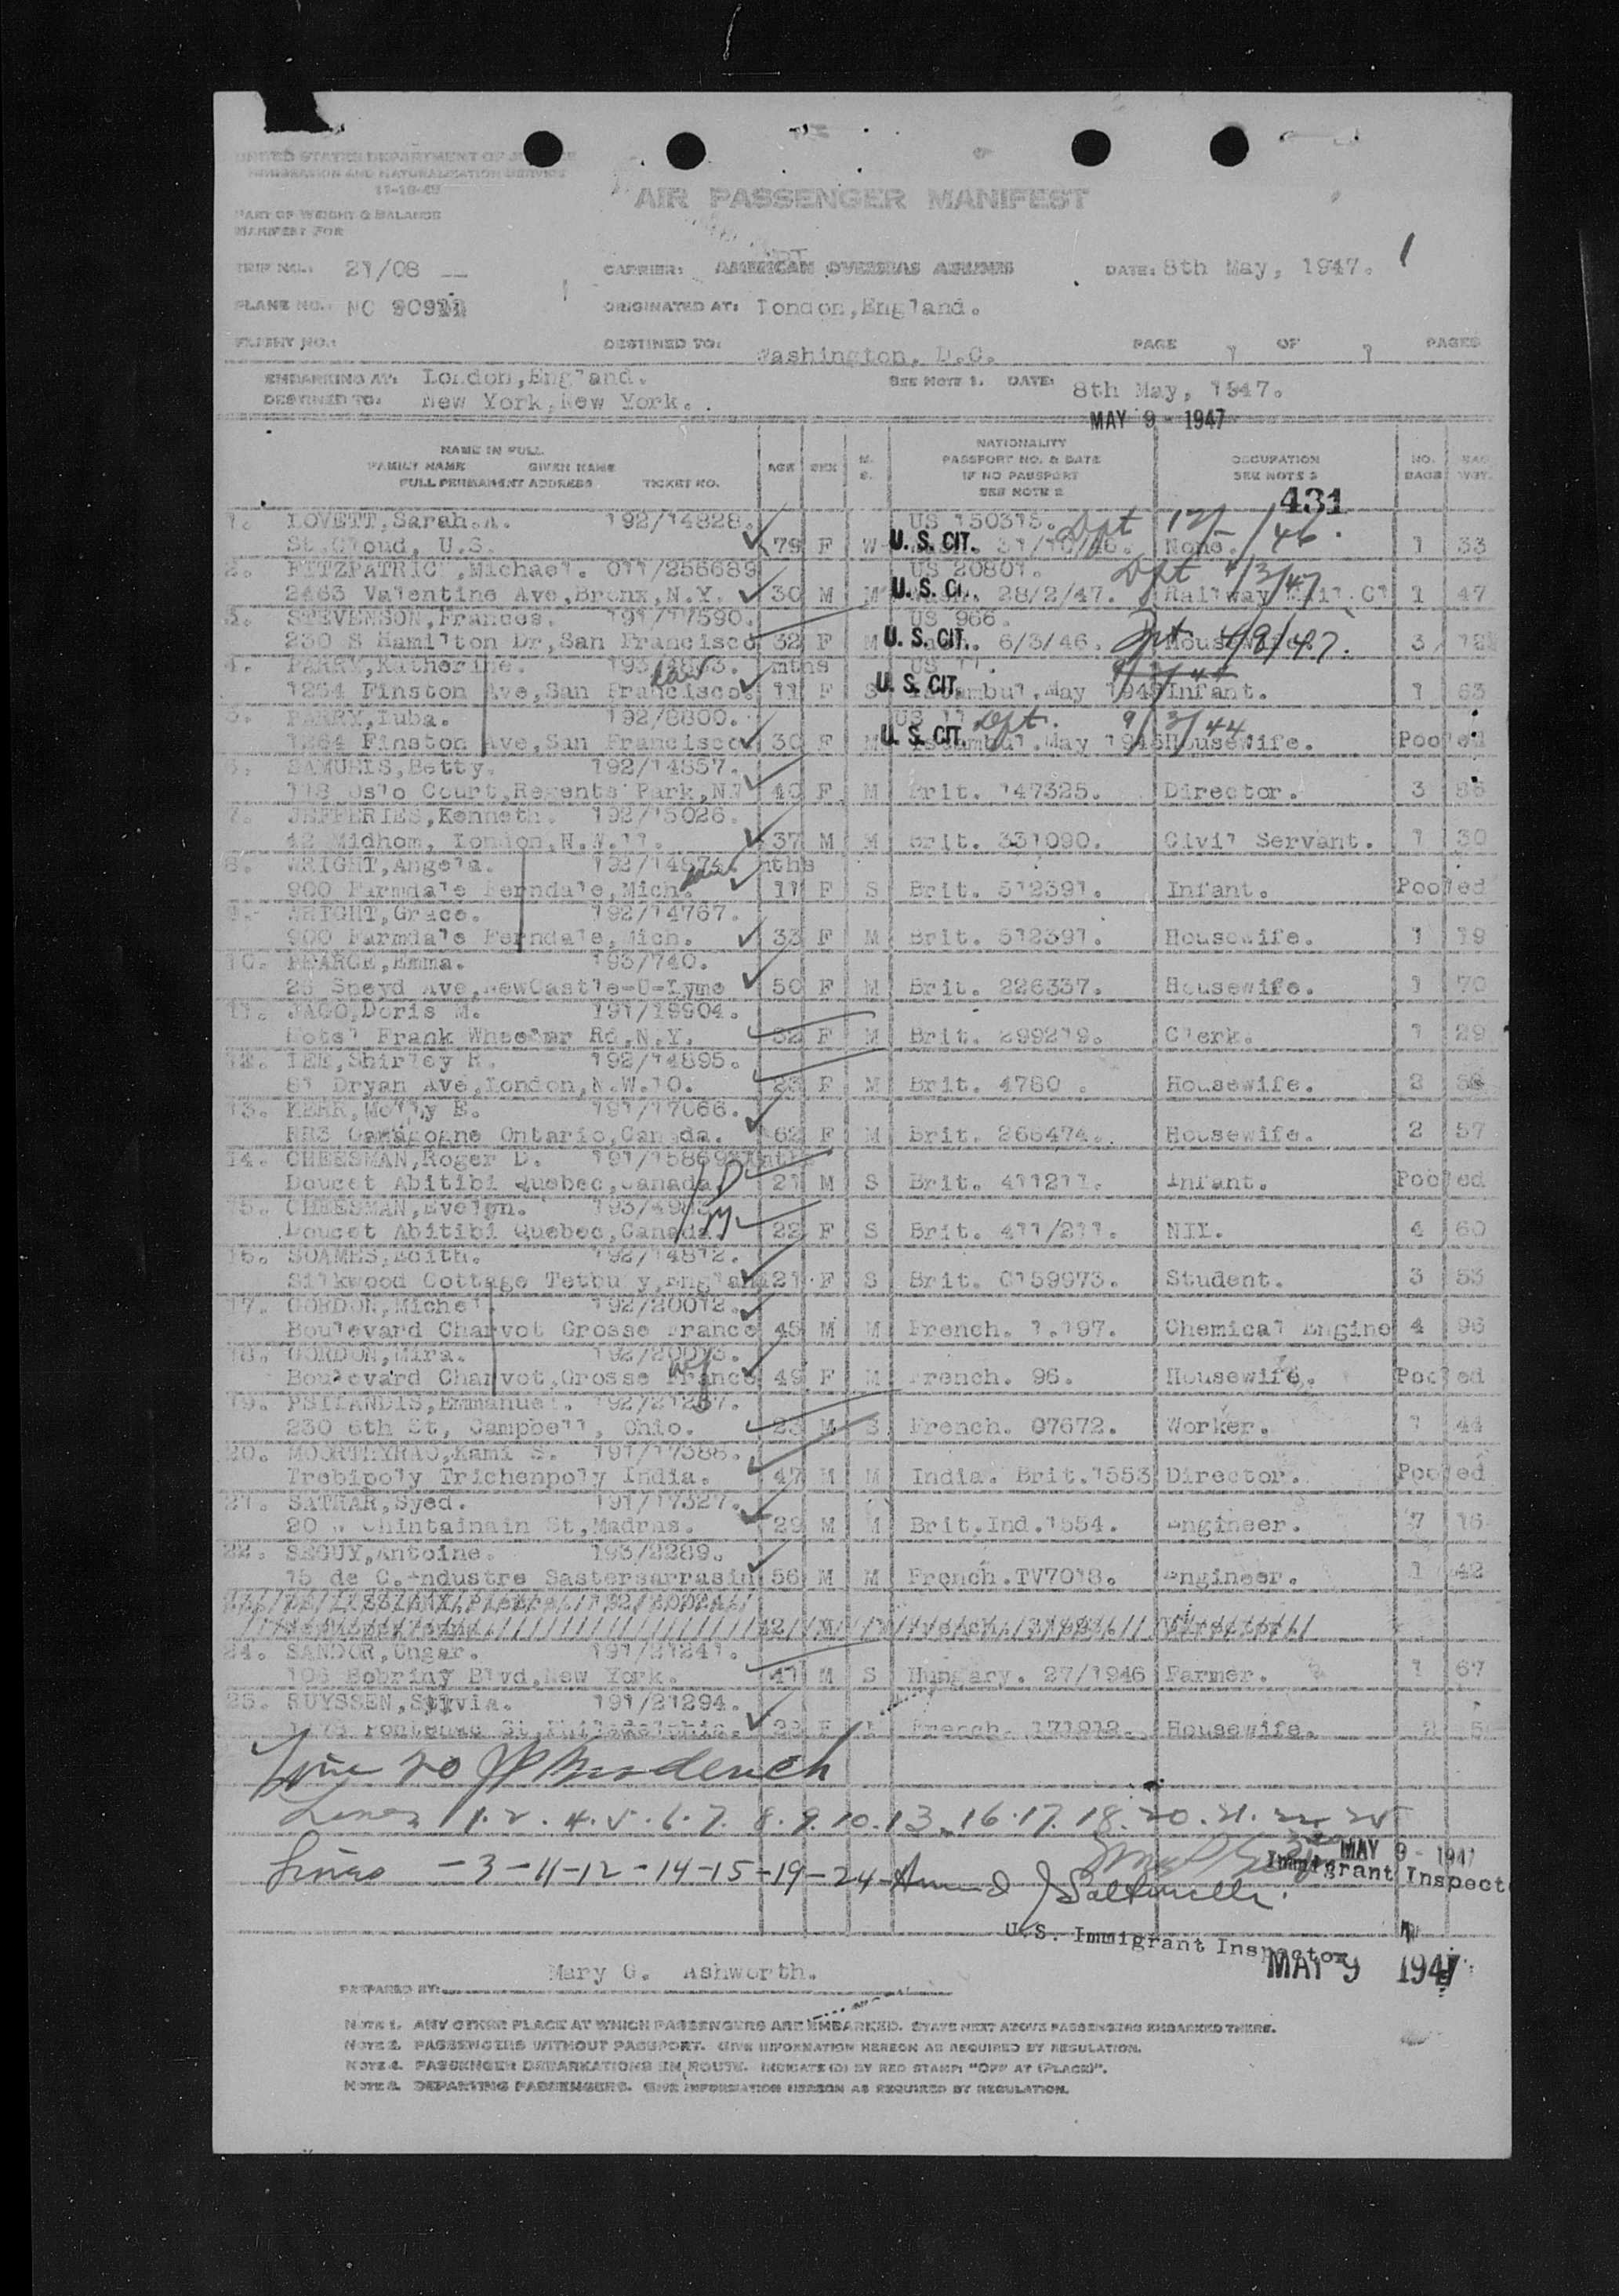 UNITED STATES DEPARTMENT OF JUSTICE
IMMIGRATION AND NATURALIZATION SERVICE
11-18-45
PART OF WEIGHT & BALANCE
MANIFEST FOR
AIR PASSENGER MANIFEST
1
TRIP NO.: 21/08 CARRIER: AMERICAN OVERSEAS AIRLINES DATE: 8th May, 1947.
PLANE NO.: NC ORIGINATED AT: London,England.
FLIGHT NO.: DESTINED TO: Washington, D.C. PAGE 1 OF 1 PAGES
EMBARKING AT: London,England. SEE NOTE 1. DATE: 8th May, 1947.
DESTINED TO: New York,New York.
MAY 9 - 1947
NAME IN FULL NATIONALITY
FAMILY NAME GIVEN NAME AGE SEX M. PASSPORT NO. & DATE OCCUPATION NO. BAG
FULL PERMANENT ADDRESS TICKET NO. S. IF NO PASSPORT SEE NOTE 2 BAGS WGT.
SEE NOTE 2
431
1. LOVETT,Sarah.A. 192/14828. US 150315. Dpt 12/ /46.
St.Cloud, U.S. 79 F W U. S. CIT. 31/10/46. None. 1 33
2. FITZPATRIC ,Michael. 011/256689 US 20801. Dpt 4/3/47
2463 Valentine Ave,Bronx,N.Y. 30 M M U. S. CI. 28/2/47. Railway Mail Cl 1 47
3. STEVENSON,Frances. 191/17590. US 966.
230 S Hamilton Dr,San Francisco 32 F M U. S. CIT. 6/3/46. Dpt 4/8/47. Housewife 3
4. PARRY,Katherine. mths US 11.
1264 Finston Ave,San Francisco. 11 F S U. S. CIT. Istambul.May 1945 Infant. 1 63
5. PARRY,Luba. 192/8800. US 11 Dpt. 9/3/44
1264 Finston Ave,San Francisco. 30 F M U. S. CIT. Istambul.May 1945 Housewife. Pooled
6. SAMUELS,Betty. 192/14557.
118 Oslo Court,Regents Park,N. 40 F M Brit. 147325. Director. 3 86
7. JEFFERIES,Kenneth. 192/15026.
42 Midhom, London,N.W.11. 37 M M Brit. 331090. Civil Servant. 1 30
8. WRIGHT,Angela. 192/14874. mths
900 Farmdale Ferndale,Mich. 11 F S Brit. 512391. Infant. Pooled
9. WRIGHT,Grace. 192/14767.
900 Farmdale Ferndale,Mich. 33 F M Brit. 512391. Housewife. 1 19
10. PEARCE,Emma. 193/740.
25 Speyd Ave,NewCastle-U-Lyme 50 F M Brit. 226337. Housewife. 1 70
11. JAGO,Doris M. 191/19904.
Hotel Frank Wheeler Rd,N.Y. 32 F M Brit. 299219. Clerk. 1 29
12. LEE,Shirley R. 192/14895.
81 Dryan Ave,London,N.W.10. 23 F M Brit. 4780 . Housewife. 2
13. KERR,Molly E. 191/17066.
RR3 Ganagogne Ontario,Canada. 62 F M Brit. 266474. Housewife. 2 57
14. CHEESMAN,Roger D. 191/15869
Doucet Abitibi Quebec,Canada. 21 M S Brit. 411211. Infant. Pooled
15. CHEESMAN,Evelyn. 193/4983.
Doucet Abitibi Quebec,Canada. 22 F S Brit. 411/211. NIL. 4 60
16. SOAMES,Edith. 192/14812.
Silkwood Cottage Tetbu y,England 21 F S Brit. C159973. Student. 3 53
17. GORDON,Michel. 192/20012.
Boulevard Charvot Grosse France 45 M M French. 1.197. Chemical Engine 4 96
18. GORDON,Mira. 192/20013. wf
Boulevard Charvot,Grosse France 49 F M French. 96. Housewife. Pooled
19. PSILANDIS,Emmanuel. 192/21267.
230 6th St, Campbell, Ohio. 23 M S French. 07672. Worker. 1 44
20. MOORTHYRAO,Rami S. 191/17388.
Trebipoly Trichenpoly India. 47 M M India. Brit.1553 Director. Pooled
21. SATHAR,Syed. 191/17327.
20 W Chintainain St,Madras. 29 M M Brit.Ind.1554. Engineer. 7 16
22. SEGUY,Antoine. 193/2289.
15 de C.Industre Sastersarrasin 56 M M French.TV7018. Engineer. 1 42
24. SANDOR,Ungar. 191/21241.
106 Bobriny Blvd,New York. 41 M S Hungary. 27/1946 Farmer. 1 67
25. RUYSSEN,Sylvia. 191/21294.
Fontenac St,Philadelphia. 23 F French. 171912. Housewife.
Line 20
Lines 1.2.4.5.6.7.8.9.10.13.16.17.18.20.21.22 25
MAY 9 - 1947
Immigrant Inspect
Lines -3-11-12-14-15-19-24-
U.S. Immigrant Inspector
MAY 9 1947
PREPARED BY: Mary G. Ashworth.
NOTE 1. ANY OTHER PLACE AT WHICH PASSENGERS ARE EMBARKED. STATE NEXT ABOVE PASSENGERS EMBARKED THERE.
NOTE 2. PASSENGERS WITHOUT PASSPORT. GIVE INFORMATION HEREON AS REQUIRED BY REGULATION.
NOTE 4. PASSENGER DEBARKATIONS EN ROUTE. INDICATE (D) BY RED STAMP: "OFF AT (PLACE)".
NOTE 5. DEPARTING PASSENGERS. GIVE INFORMATION HEREON AS REQUIRED BY REGULATION.